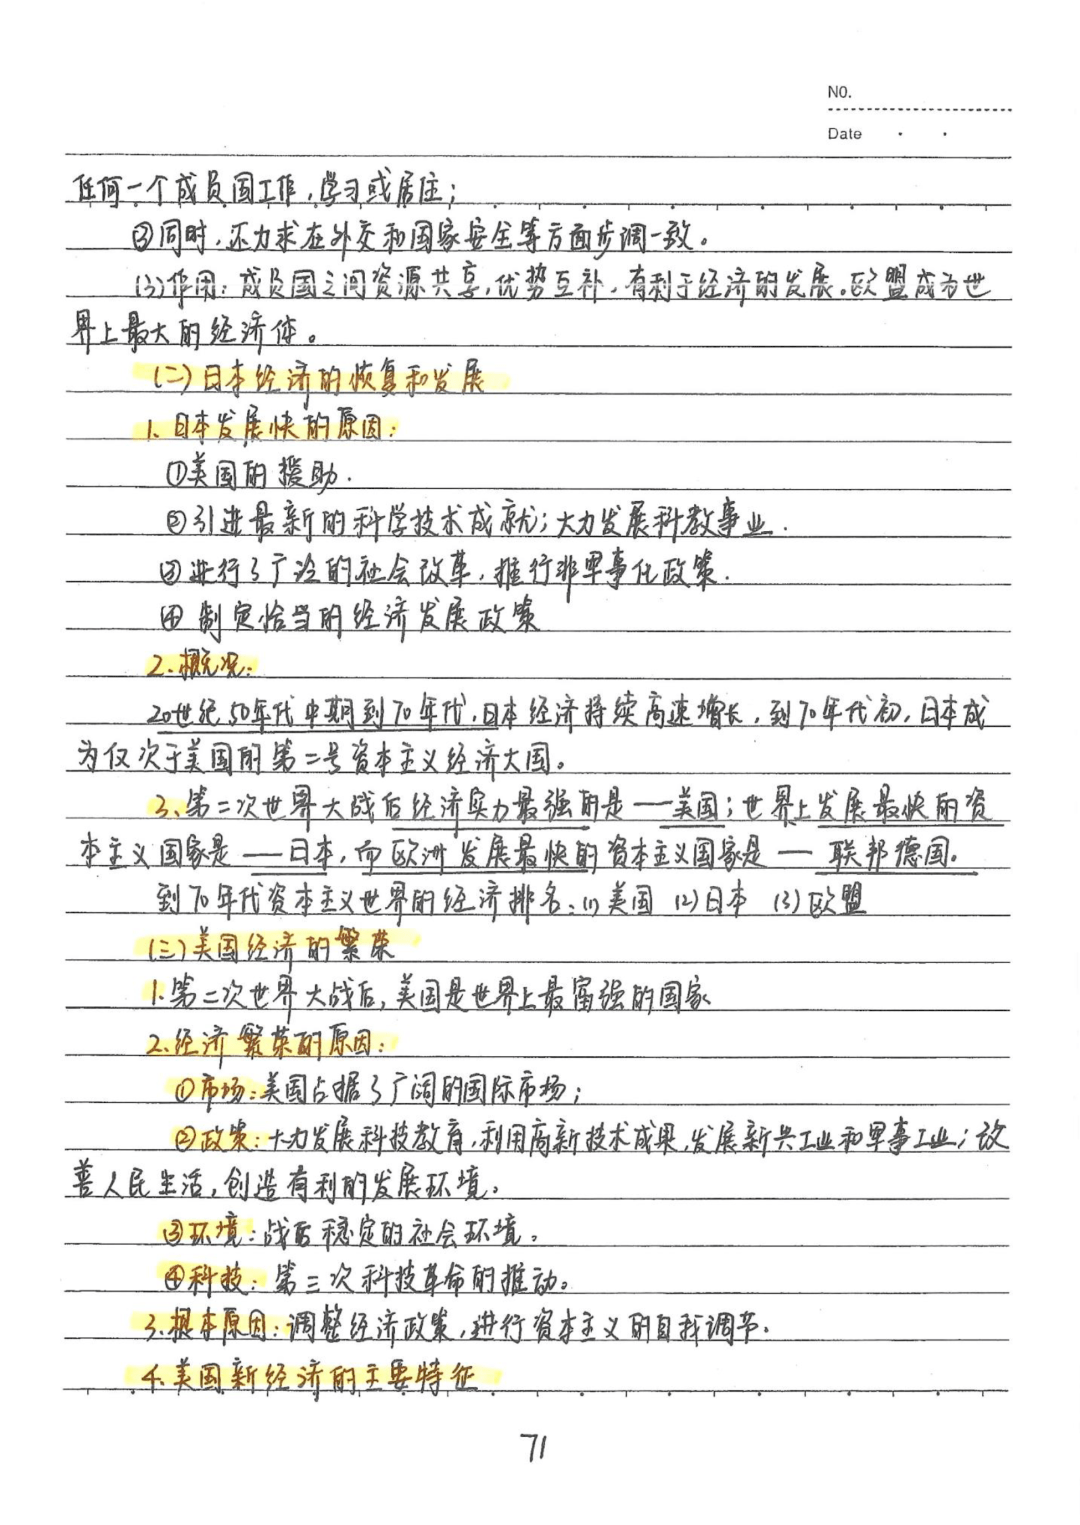 NO.
Date
任何一个成员国工作,学习或居住;
③同时,还力求在外交和国家安全等方面步调一致。
(3)作用:成员国之间资源共享,优势互补,有利于经济的发展。欧盟成为世
界上最大的经济体。
(二)日本经济的恢复和发展
1.日本发展快的原因:
①美国的援助.
②引进最新的科学技术成就;大力发展科教事业.
③进行了广泛的社会改革,推行非军事化政策.
④制定恰当的经济发展政策
2.概况:
20世纪50年代中期到70年代,日本经济持续高速增长,到70年代初,日本成
为仅次于美国的第二号资本主义经济大国。
3.第二次世界大战后经济实力最强的是——美国;世界上发展最快的资
本主义国家是——日本,而欧洲发展最快的资本主义国家是——联邦德国.
到70年代资本主义世界的经济排名:(1)美国 (2)日本 (3)欧盟
(三)美国经济的繁荣
1.第二次世界大战后,美国是世界上最富强的国家
2.经济繁荣的原因:
①市场:美国占据了广阔的国际市场;
②政策:大力发展科技教育,利用高新技术成果,发展新兴工业和军事工业;改
善人民生活,创造有利的发展环境。
③环境:战后稳定的社会环境。
④科技:第三次科技革命的推动。
3.根本原因:调整经济政策,进行资本主义的自我调节.
4.美国新经济的主要特征
71